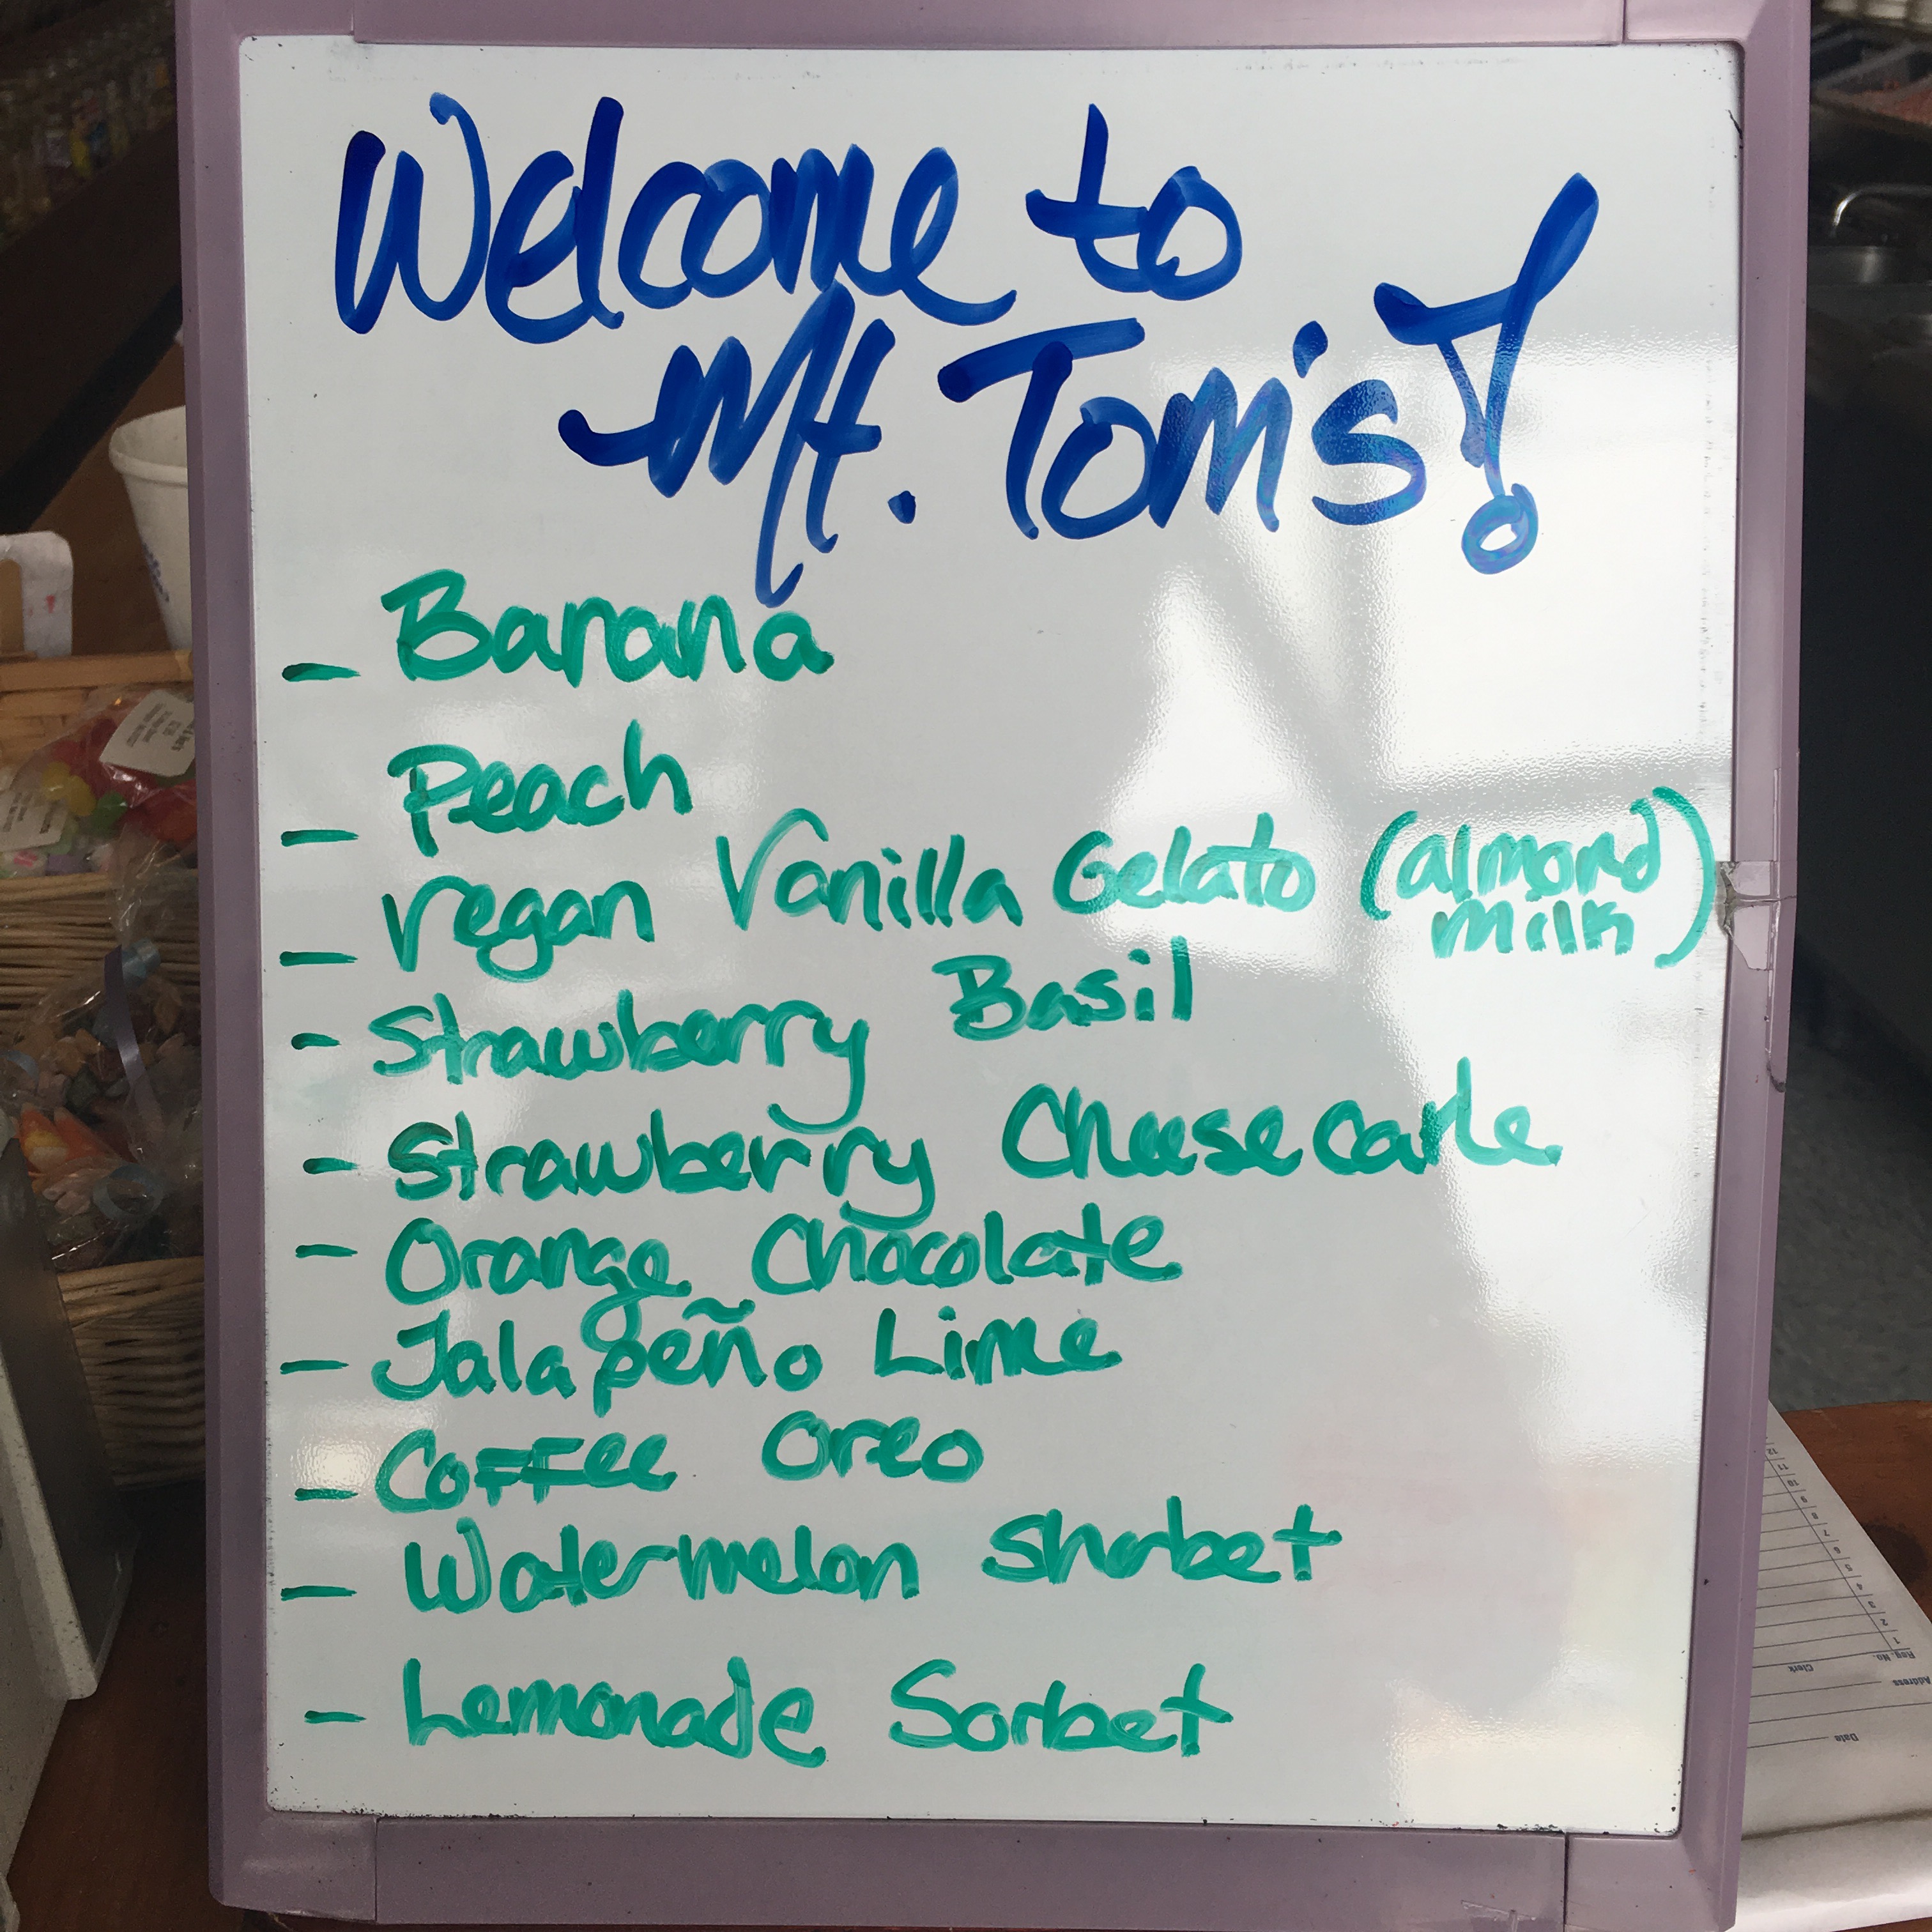 Welcome to
Mt. Tom's!
- Banana
- Peach
- Vegan Vanilla Gelato (almond
milk)
- Strawberry Basil
- Strawberry Cheesecake
- Orange Chocolate
- Jalapeño Lime
- Coffee Oreo
- Watermelon Sherbet
- Lemonade Sorbet
12
11
10
9
8
7
6
5
4
3
2
1
Reg. No.
Clerk
Address
Date